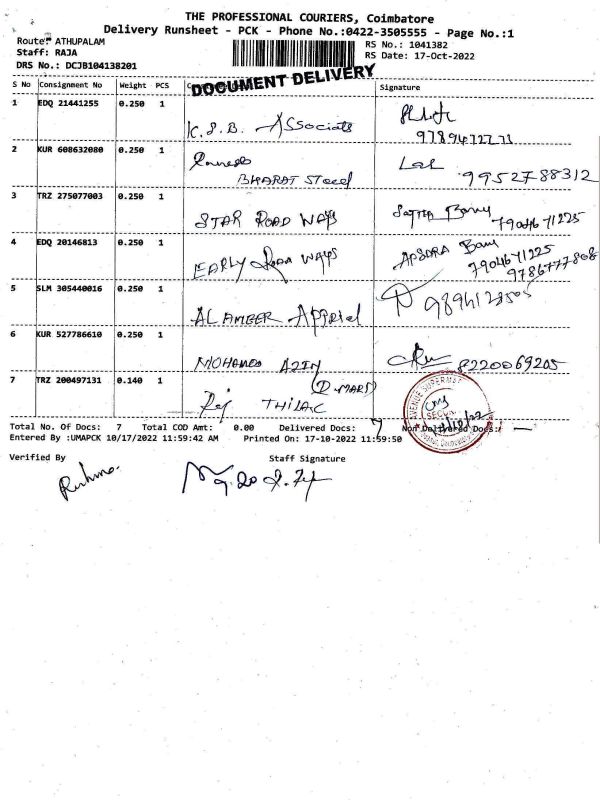 THE PROFESSIONAL COURIERS, Coimbatore
Delivery Runsheet - PCK - Phone No.:0422-3505555 - Page No.:1
Route: ATHUPALAM
RS No.: 1041382
Staff: RAJA
RS Date: 17-Oct-2022
DRS No.: DCJB104138201
DOCUMENT DELIVERY
S No Consignment No Weight PCS Signature
1 EDQ 21441255 0.250 1
K.S.B. Associats
2 KUR 608632080 0.250 1
BHARAT Steel
Lal 9952788312
3 TRZ 275077003 0.250 1
STAR ROAD WAYS
7904671225
4 EDQ 20146813 0.250 1
EARLY ROAD WAYS
APSARA Banu
7904671225
9786777808
5 SLM 305440016 0.250 1
AL AMEER Apprial
6 KUR 527786610 0.250 1
MOHAMED AZIM
8220069205
(D.MART)
7 TRZ 200497131 0.140 1
THILAC
AVENUE SUPERMART
SECURITY
Total No. Of Docs: 7 Total COD Amt: 0.00 Delivered Docs: 7 Non Delivered Docs: —
Entered By :UMAPCK 10/17/2022 11:59:42 AM Printed On: 17-10-2022 11:59:50
Verified By Staff Signature